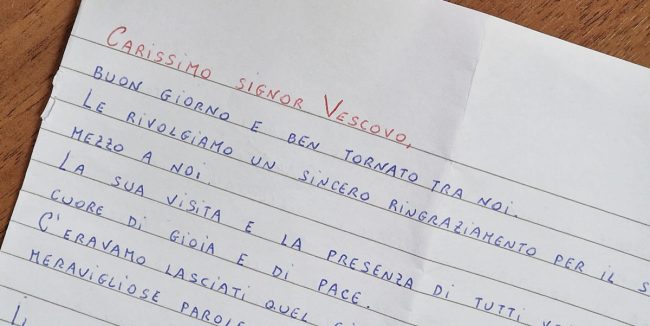 Carissimo signor Vescovo,
Buon giorno e ben tornato tra noi.
Le rivolgiamo un sincero ringraziamento per il s
mezzo a noi.
La sua visita e la presenza di tutti
cuore di gioia e di pace.
C'eravamo lasciati quel
meravigliose parole